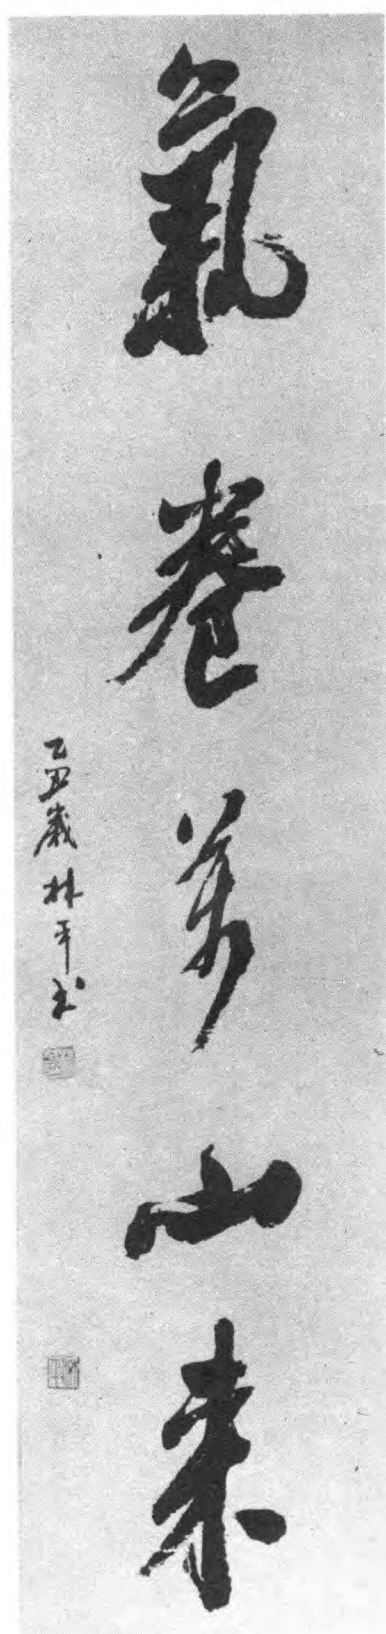 氣卷萬山來
乙丑歲林平书